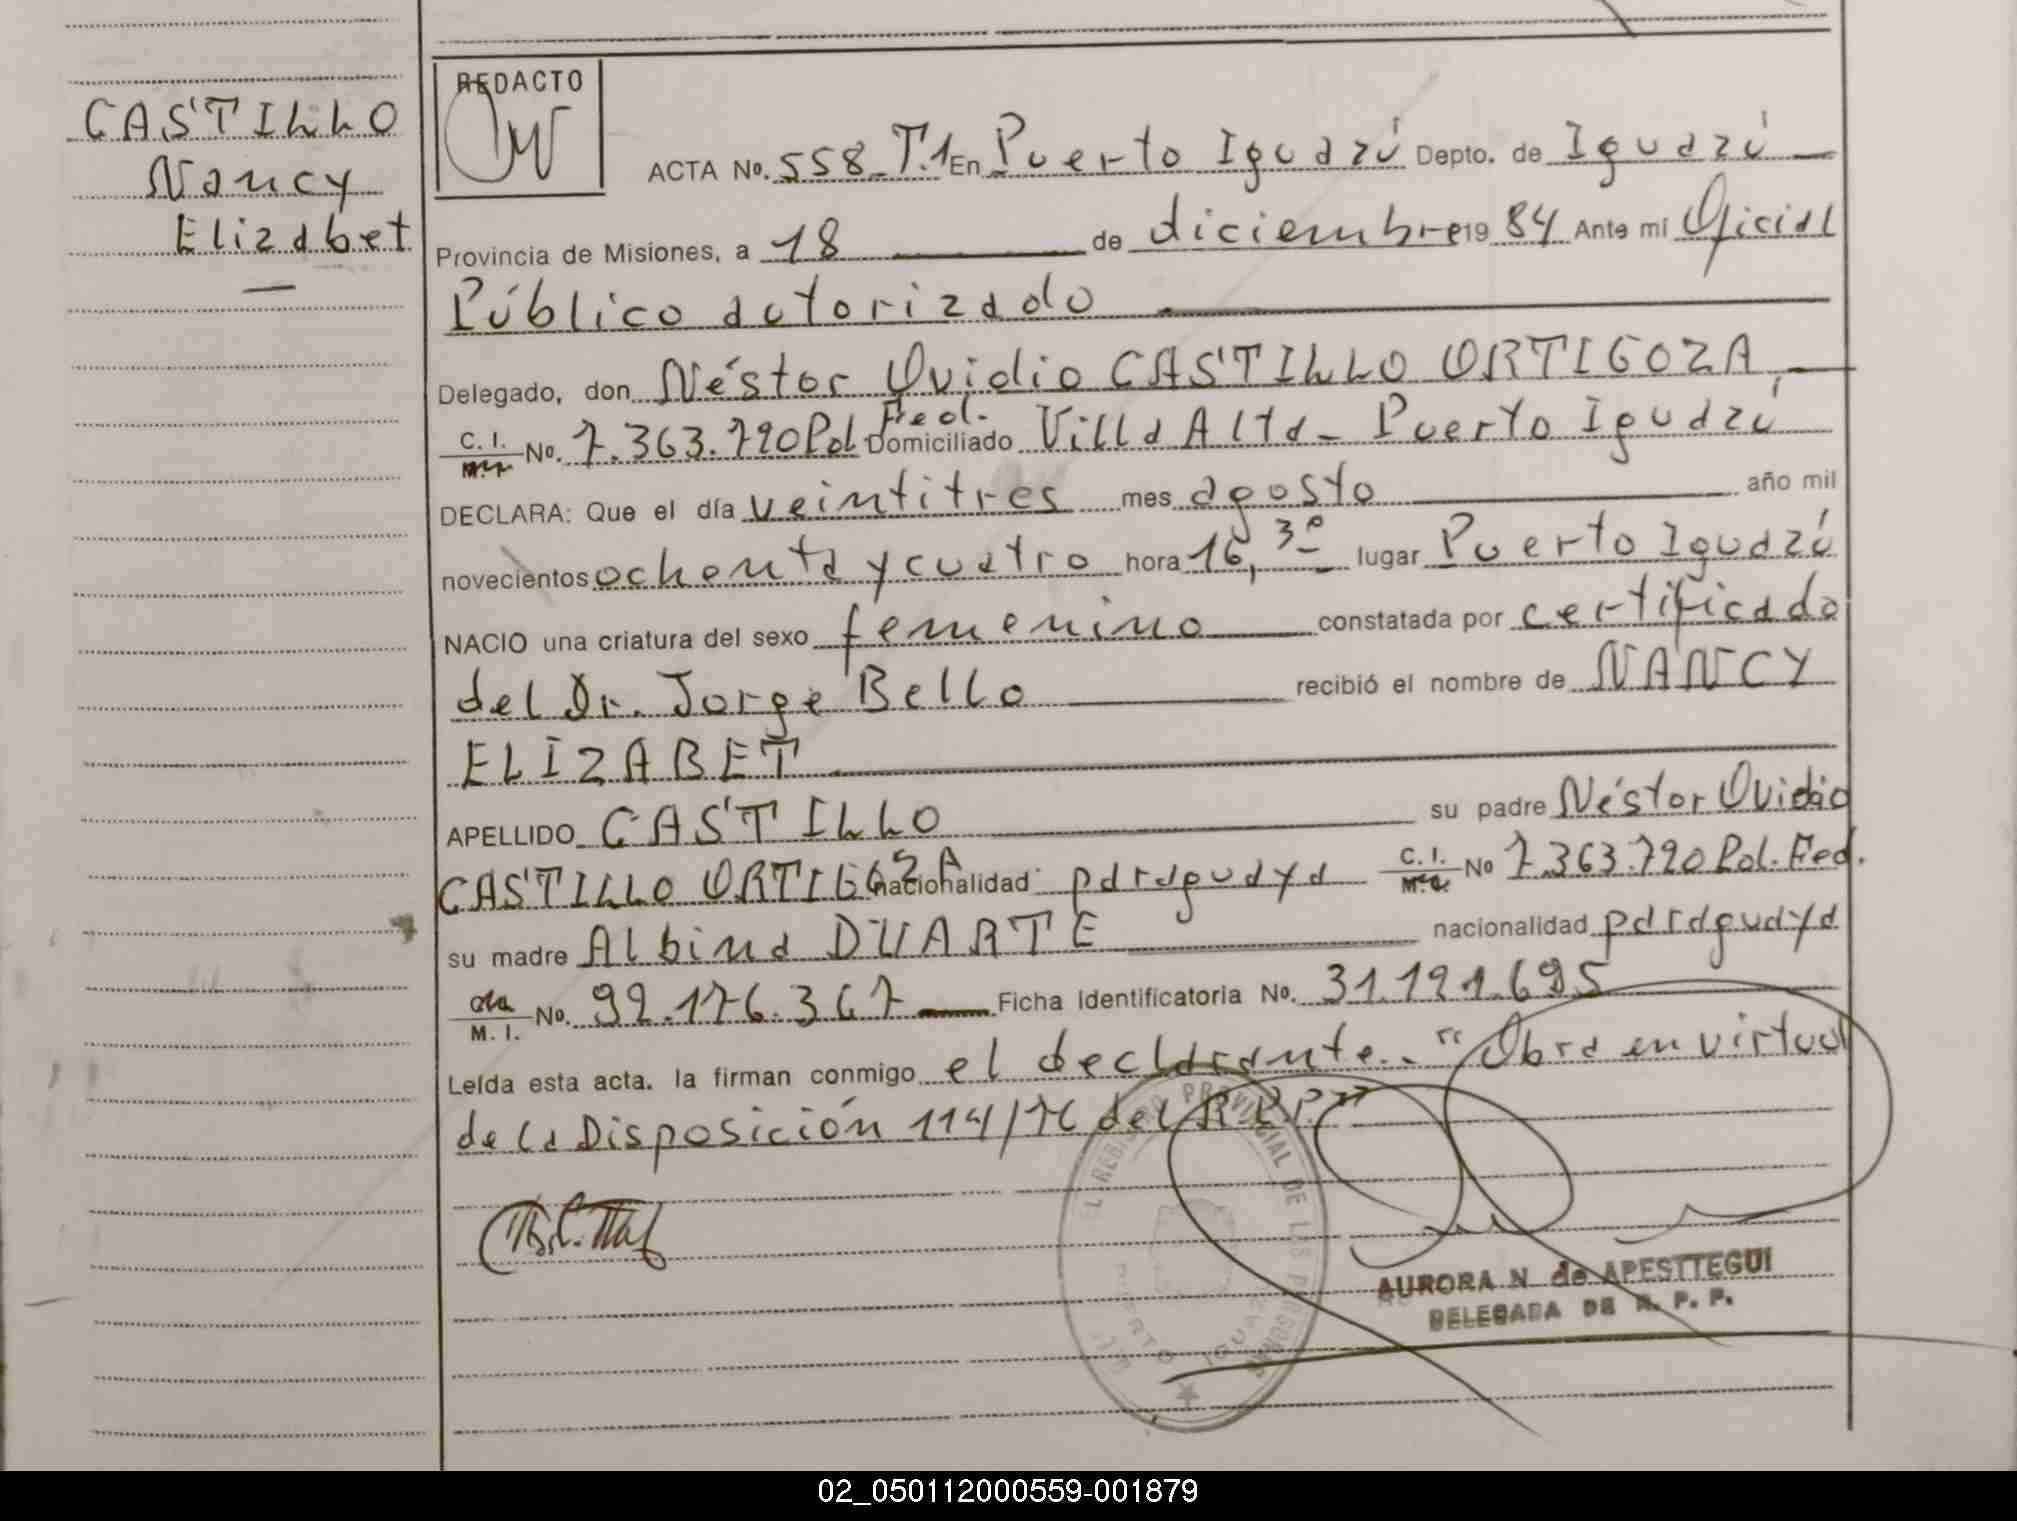 CASTILLO
Nancy
Elizabet
REDACTO
ACTA No. 558 T.1 En Puerto Iguazú Depto. de Iguazú
Provincia de Misiones, a 18 de diciembre 19 84 Ante mi Oficial
Público autorizado
Delegado, don Néstor Ovidio CASTILLO ORTIGOZA,
C. I. No. 7.363.720 Pol Fed. Domiciliado Villa Alta - Puerto Iguazú
DECLARA: Que el día veintitres mes agosto año mil
novecientos ochenta y cuatro hora 16,30 lugar Puerto Iguazú
NACIO una criatura del sexo femenino constatada por certificado
del Dr. Jorge Bello recibió el nombre de NANCY
ELIZABET
APELLIDO CASTILLO su padre Néstor Ovidio
CASTILLO ORTIGOZA nacionalidad paraguaya C. I. No 7.363.720 Pol. Fed.
su madre Albina DUARTE nacionalidad paraguaya
M. I. No. 92.176.367 Ficha Identificatoria No. 31.121.695
Leída esta acta. la firman conmigo el declarante.. "Obra en virtud
de la Disposición 114/76 del R.P.P."
REGISTRO PROVINCIAL DE LAS PERSONAS
PUERTO IGUAZU
AURORA N de APESTTEGUI
DELEGADA DE R. P. P.
02_050112000559-001879